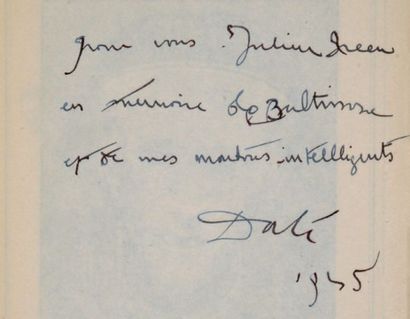 pour vous Julien Green
en memoire de Baltimore
et de mes montres intelligents
Dali
1945